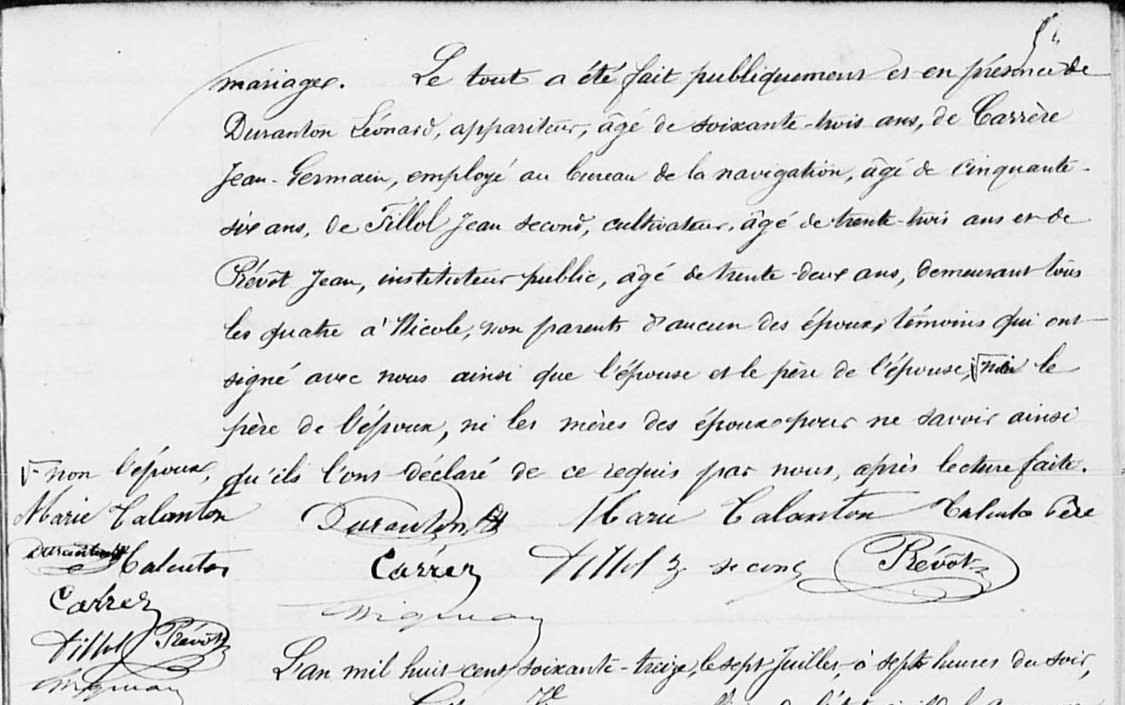 mariages. Le tout a été fait publiquement et en présence de
Duranton Léonard, appariteur, âgé de soixante-trois ans, de Carrère
Jean-Germain, employé au bureau de la navigation, âgé de cinquante-
six ans, de Tillol Jean second, cultivateur, âgé de trente-trois ans et de
Prévôt Jean, instituteur public, âgé de trente-deux ans, demeurant tous
les quatre à Nicole, non parents d'aucun des époux, témoins qui ont
signé avec nous ainsi que l'épouse et le père de l'épouse, le
père de l'époux, ni les mères des époux pour ne savoir ainsi
qu'ils l'ont déclaré de ce requis par nous, après lecture faite.
non l'époux,
Marie Talanton
Duranton
Marie Talanton
Père
Carrère
Tillol
second
Prévôt
Duranton
Carrère
Tillol
Prévôt
L'an mil huit cent soixante-treize, le sept Juillet, à sept heures du soir,